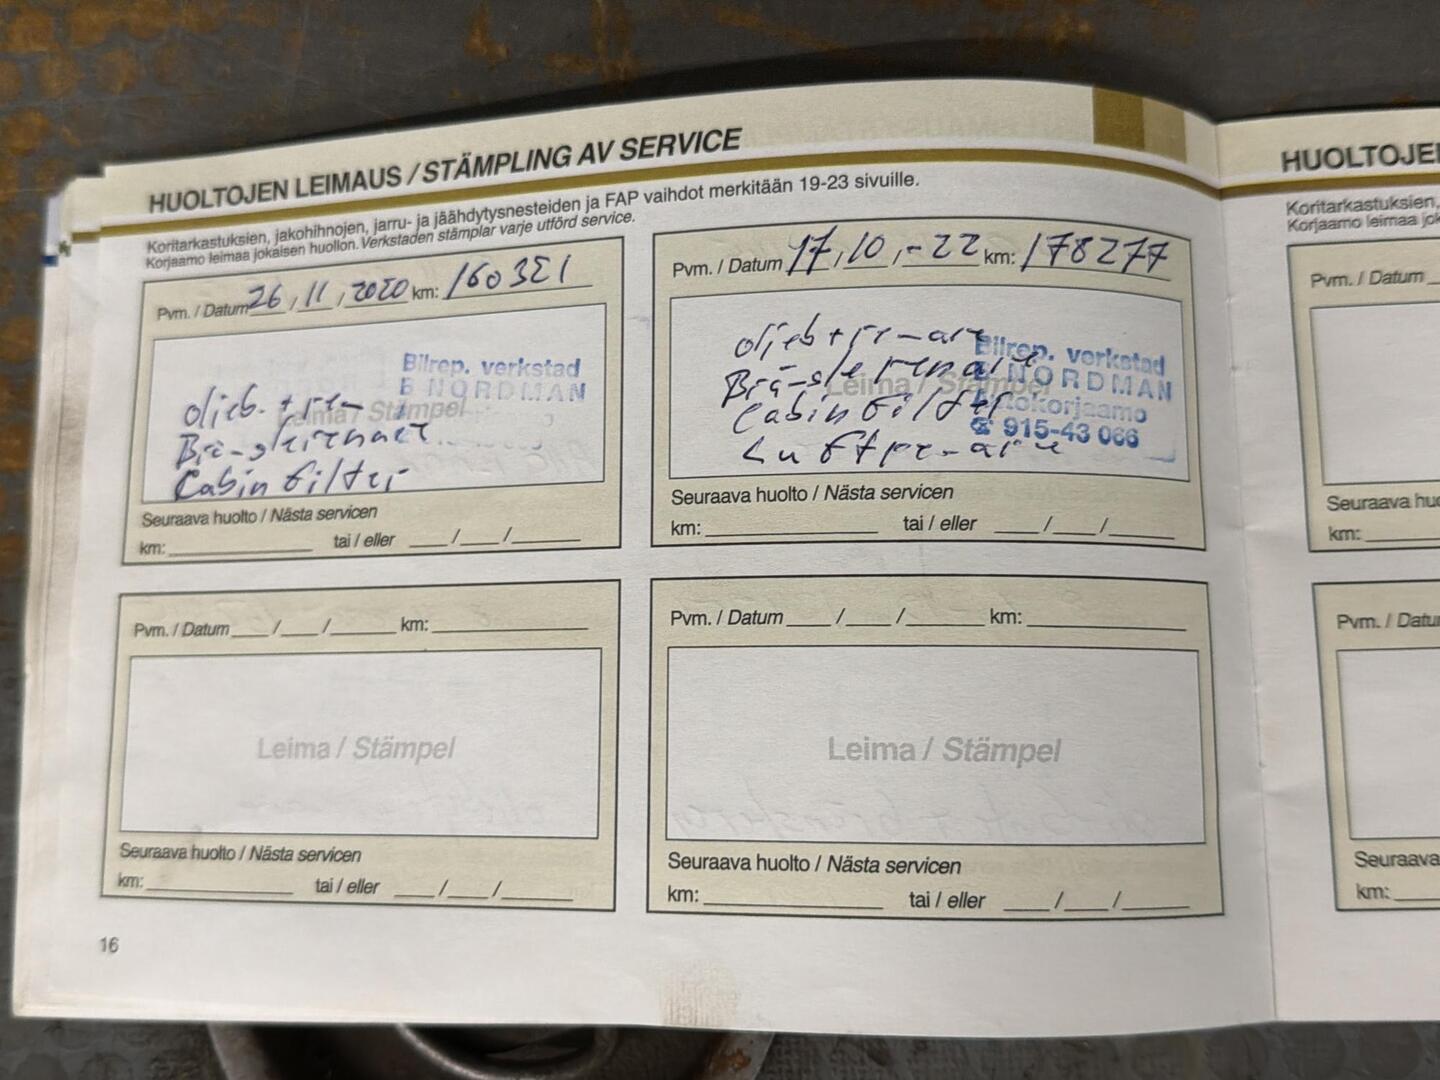 HUOLTOJEN LEIMAUS / STÄMPLING AV SERVICE
Koritarkastuksien, jakohihnojen, jarru- ja jäähdytysnesteiden ja FAP vaihdot merkitään 19-23 sivuille.
Korjaamo leimaa jokaisen huollon. Verkstaden stämplar varje utförd service.
Pvm. / Datum 26 / 11 / 2020 km: 160321
Bilrep. verkstad
B NORDMAN
Leima / Stämpel
oljeb. + ren
Bränslerenare
Cabin filter
Seuraava huolto / Nästa servicen
km: tai / eller / /
Pvm. / Datum 17 / 10 / -22 km: 178277
oljeb + renare
Bränslerenare
Cabin filter
Luftrenare
Leima / Stämpel
Bilrep. verkstad
B NORDMAN
Autokorjaamo
☎ 915-43 066
Seuraava huolto / Nästa servicen
km: tai / eller / /
Pvm. / Datum / / km:
Leima / Stämpel
Seuraava huolto / Nästa servicen
km: tai / eller / /
Pvm. / Datum / / km:
Leima / Stämpel
Seuraava huolto / Nästa servicen
km: tai / eller / /
16
Koritarkastuksien,
Korjaamo leimaa
Pvm. / Datum
km:
Pvm. /
Seuraava
km: